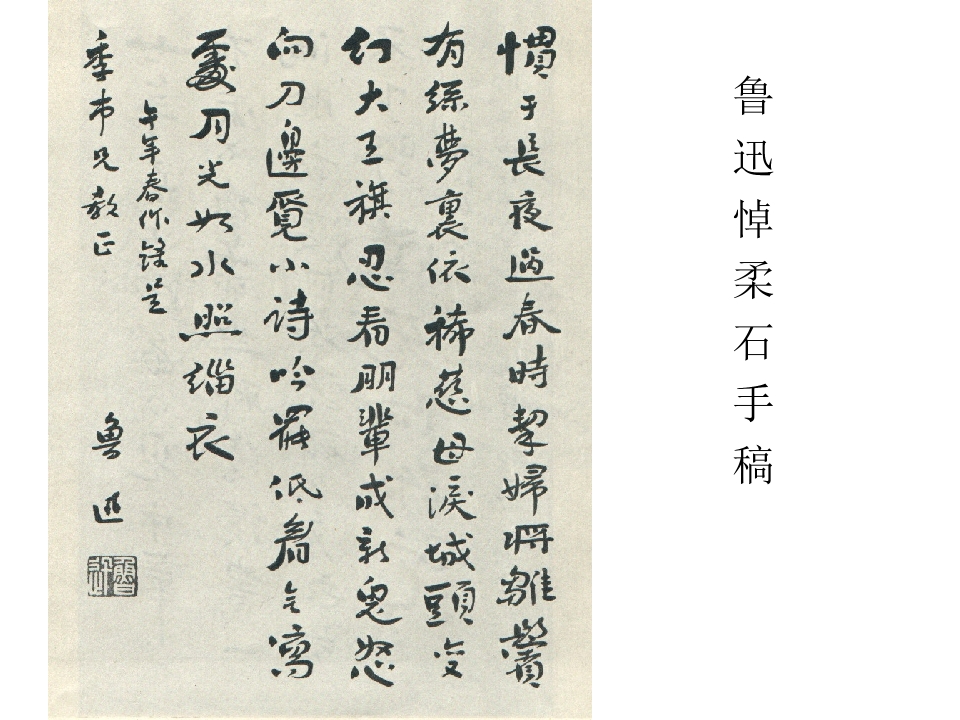 鲁迅悼柔石手稿
慣于長夜過春時挈婦將雛鬢
有絲夢裏依稀慈母淚城頭变
幻大王旗忍看朋輩成新鬼怒
向刀邊覓小詩吟罷低眉无寫
處月光如水照緇衣
午年春作錄呈
季市兄教正
魯迅